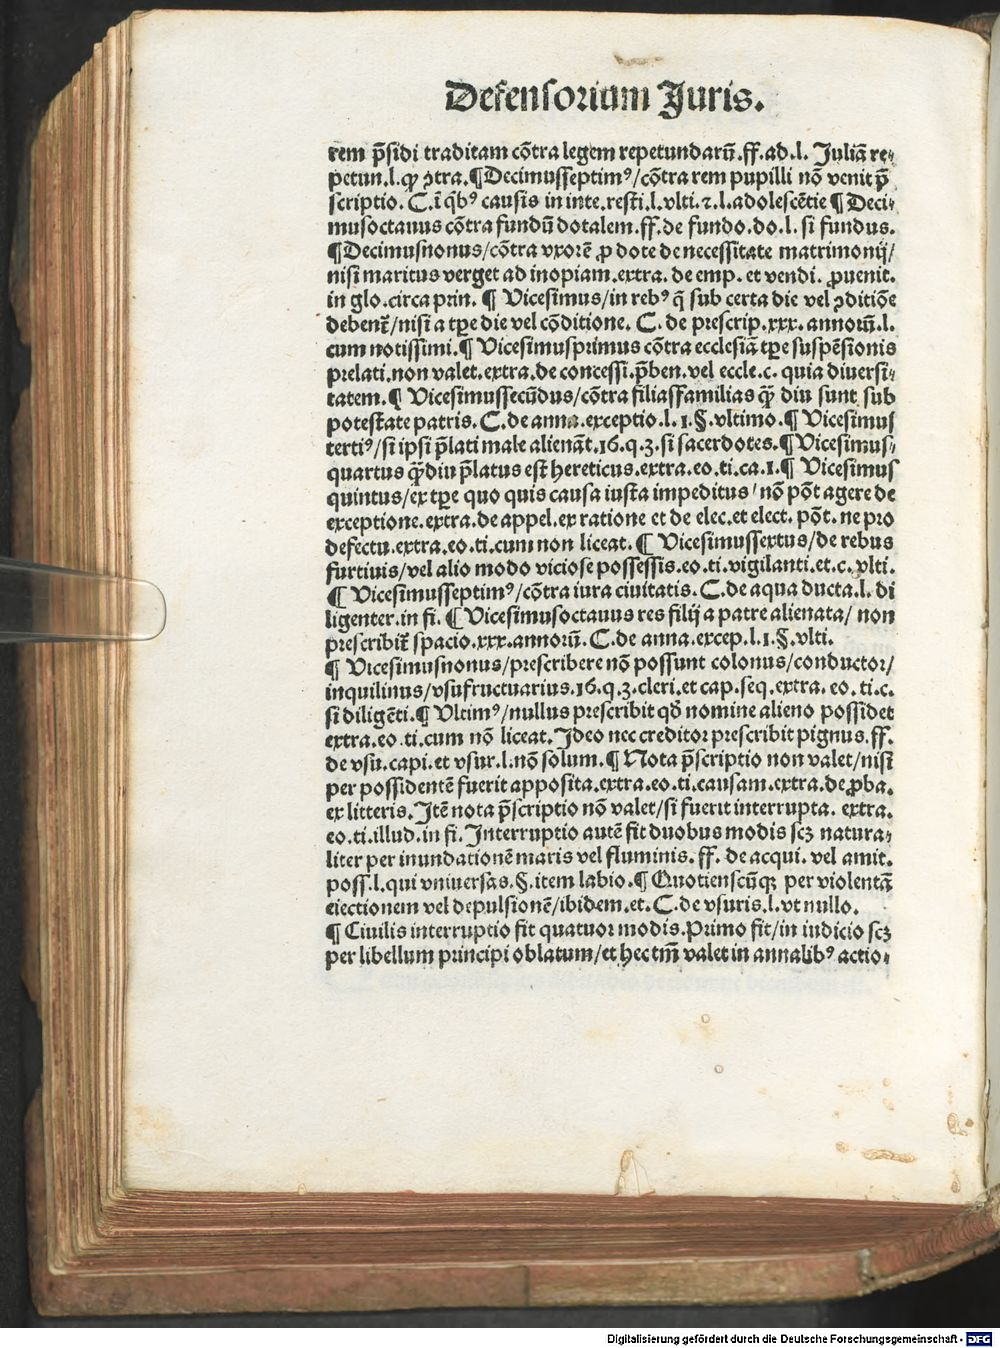 Defensorium Juris.
rem p̄sidi traditam cōtra legem repetundarū.ff.ad.l. Juliā re⸗
petun.l.ꝙ ꝯtra.¶Decimusseptimꝰ/cōtra rem pupilli nō venit p̄
scriptio. C.ī qbꝰ causis in inte.resti.l.vlti.⁊.l.adolescētie ¶ Deci⸗
musoctauus cōtra fundū dotalem.ff.de fundo.do.l. si fundus.
¶Decimusnonus/cōtra vxorē ꝓ dote de necessitate matrimonij/
nisi maritus verget ad inopiam.extra. de emp. et vendi. ꝓuenit.
in glo.circa prin. ¶ Vicesimus/in rebꝰ q̄ sub certa die vel ꝯditiōe
debent̄/nisi a tꝑe die vel cōditione. C. de prescrip.xxx. annorū.l.
cum notissimi.¶ Vicesimusprimus cōtra ecclesiā tꝑe suspēsionis
prelati.non valet.extra.de concessi.p̄ben.vel eccle.c. quia diuersi⸗
tatem.¶ Vicesimussecūdus/cōtra filiasfamilias ꝙ̄ diu sunt sub
potestate patris. C.de anna.exceptio.l.1.§.vltimo.¶ Vicesimus
tertiꝰ/si ipsi p̄lati male alienāt.16.q.3.si sacerdotes.¶Vicesimus⸗
quartus ꝙ̄diu p̄latus est hereticus.extra.eo.ti.ca.1.¶ Vicesimus
quintus/ex tꝑe quo quis causa iusta impeditus/nō pōt agere de
exceptione.extra.de appel.ex ratione et de elec.et elect. pōt. ne pro
defectu.extra.eo.ti.cum non liceat.¶ Vicesimussextus/de rebus
furtiuis/vel alio modo viciose possessis.eo.ti.vigilanti.et.c.vlti.
¶ Vicesimusseptimꝰ/cōtra iura ciuitatis. C.de aqua ducta.l. di
ligenter.in fi. ¶Vicesimusoctauus res filij a patre alienata/ non
prescribit̄ spacio.xxx.annorū.C.de anna.excep.l.1.§.vlti.
¶ Vicesimusnonus/prescribere nō possunt colonus/conductor/
inquilinus/vsufructuarius.16.q.3.cleri.et cap.seq.extra. eo. ti.c.
si diligēti.¶ Vltimꝰ/nullus prescribit qđ nomine alieno possidet
extra.eo.ti.cum nō liceat.Ideo nec creditor prescribit pignus.ff.
de vsu.capi.et vsur.l.nō solum.¶ Nota p̄scriptio non valet/nisi
per possidentē fuerit apposita.extra.eo.ti.causam.extra.de ꝓba.
ex litteris.Itē nota p̄scriptio nō valet/si fuerit interrupta. extra.
eo.ti.illud.in fi.Interruptio autē fit duobus modis scꝫ natura⸗
liter per inundationē maris vel fluminis.ff. de acqui. vel amit.
poss.l.qui vniuersas.§.item labio.¶ Quotienscūqꝫ per violentā
eiectionem vel depulsionē/ibidem.et.C.de vsuris.l.vt nullo.
¶ Ciuilis interruptio fit quatuor modis.Primo fit/in iudicio scꝫ
per libellum principi oblatum/et hec tm̄ valet in annalibꝰ actio⸗
Digitalisierung gefördert durch die Deutsche Forschungsgemeinschaft - DFG